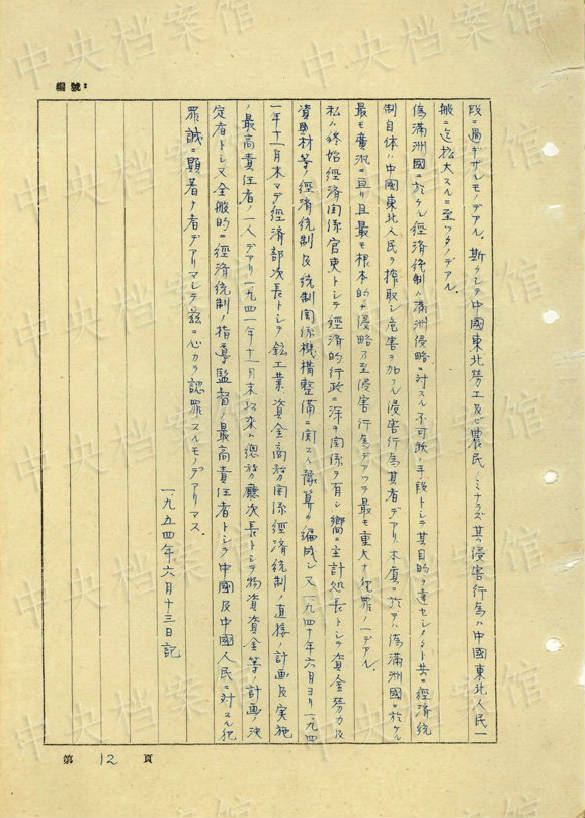 編號:
段ニ過ギザルモノデアル。斯クシテ中國東北勞工及ビ農民ノミナラズ其ノ侵害行為ハ中國東北人民一
般ニ迄拡大スルニ至ツタノデアル。
偽滿洲國ニ於ケル經済統制ハ滿洲侵略ニ対スル不可欠ノ手段トシテ其目的ヲ達セシメルト共ニ經済統
制自体ハ中國東北人民ヲ搾取シ危害ヲ加フル侵害行為其者デアリ本質ニ於テハ偽滿洲國ニ於ケル
最モ廣汎ニ亘リ且最モ根本的ナ侵略乃至侵害行為デアツテ最モ重大ナ犯罪ノ一デアル。
私ハ終始經済関係官吏トシテ經済的行政ニ深キ関係ヲ有シ嚮ニ主計処長トシテ資金勞力及
資材等ノ經済統制及統制関係機構整備ニ関スル豫算ヲ編成シ又一九四十年六月ヨリ一九四
一年十一月末マデ經済部次長トシテ鉱工業資金商務関係經済統制ノ直接ノ計画及実施
ノ最高責任者ノ一人デアリ一九四一年十一月末以来ハ總務廳次長トシテ物資資金等ノ計画ノ決
定者トシ又全般的ニ經済統制ノ指導監督ノ最高責任者トシテ中國及中國人民ニ対スル犯
罪誠ニ顕著ナ者デアリマシテ茲ニ心カラ認罪スルモノデアリマス。
一九五四年六月十三日記
第 12 頁
中央档案馆